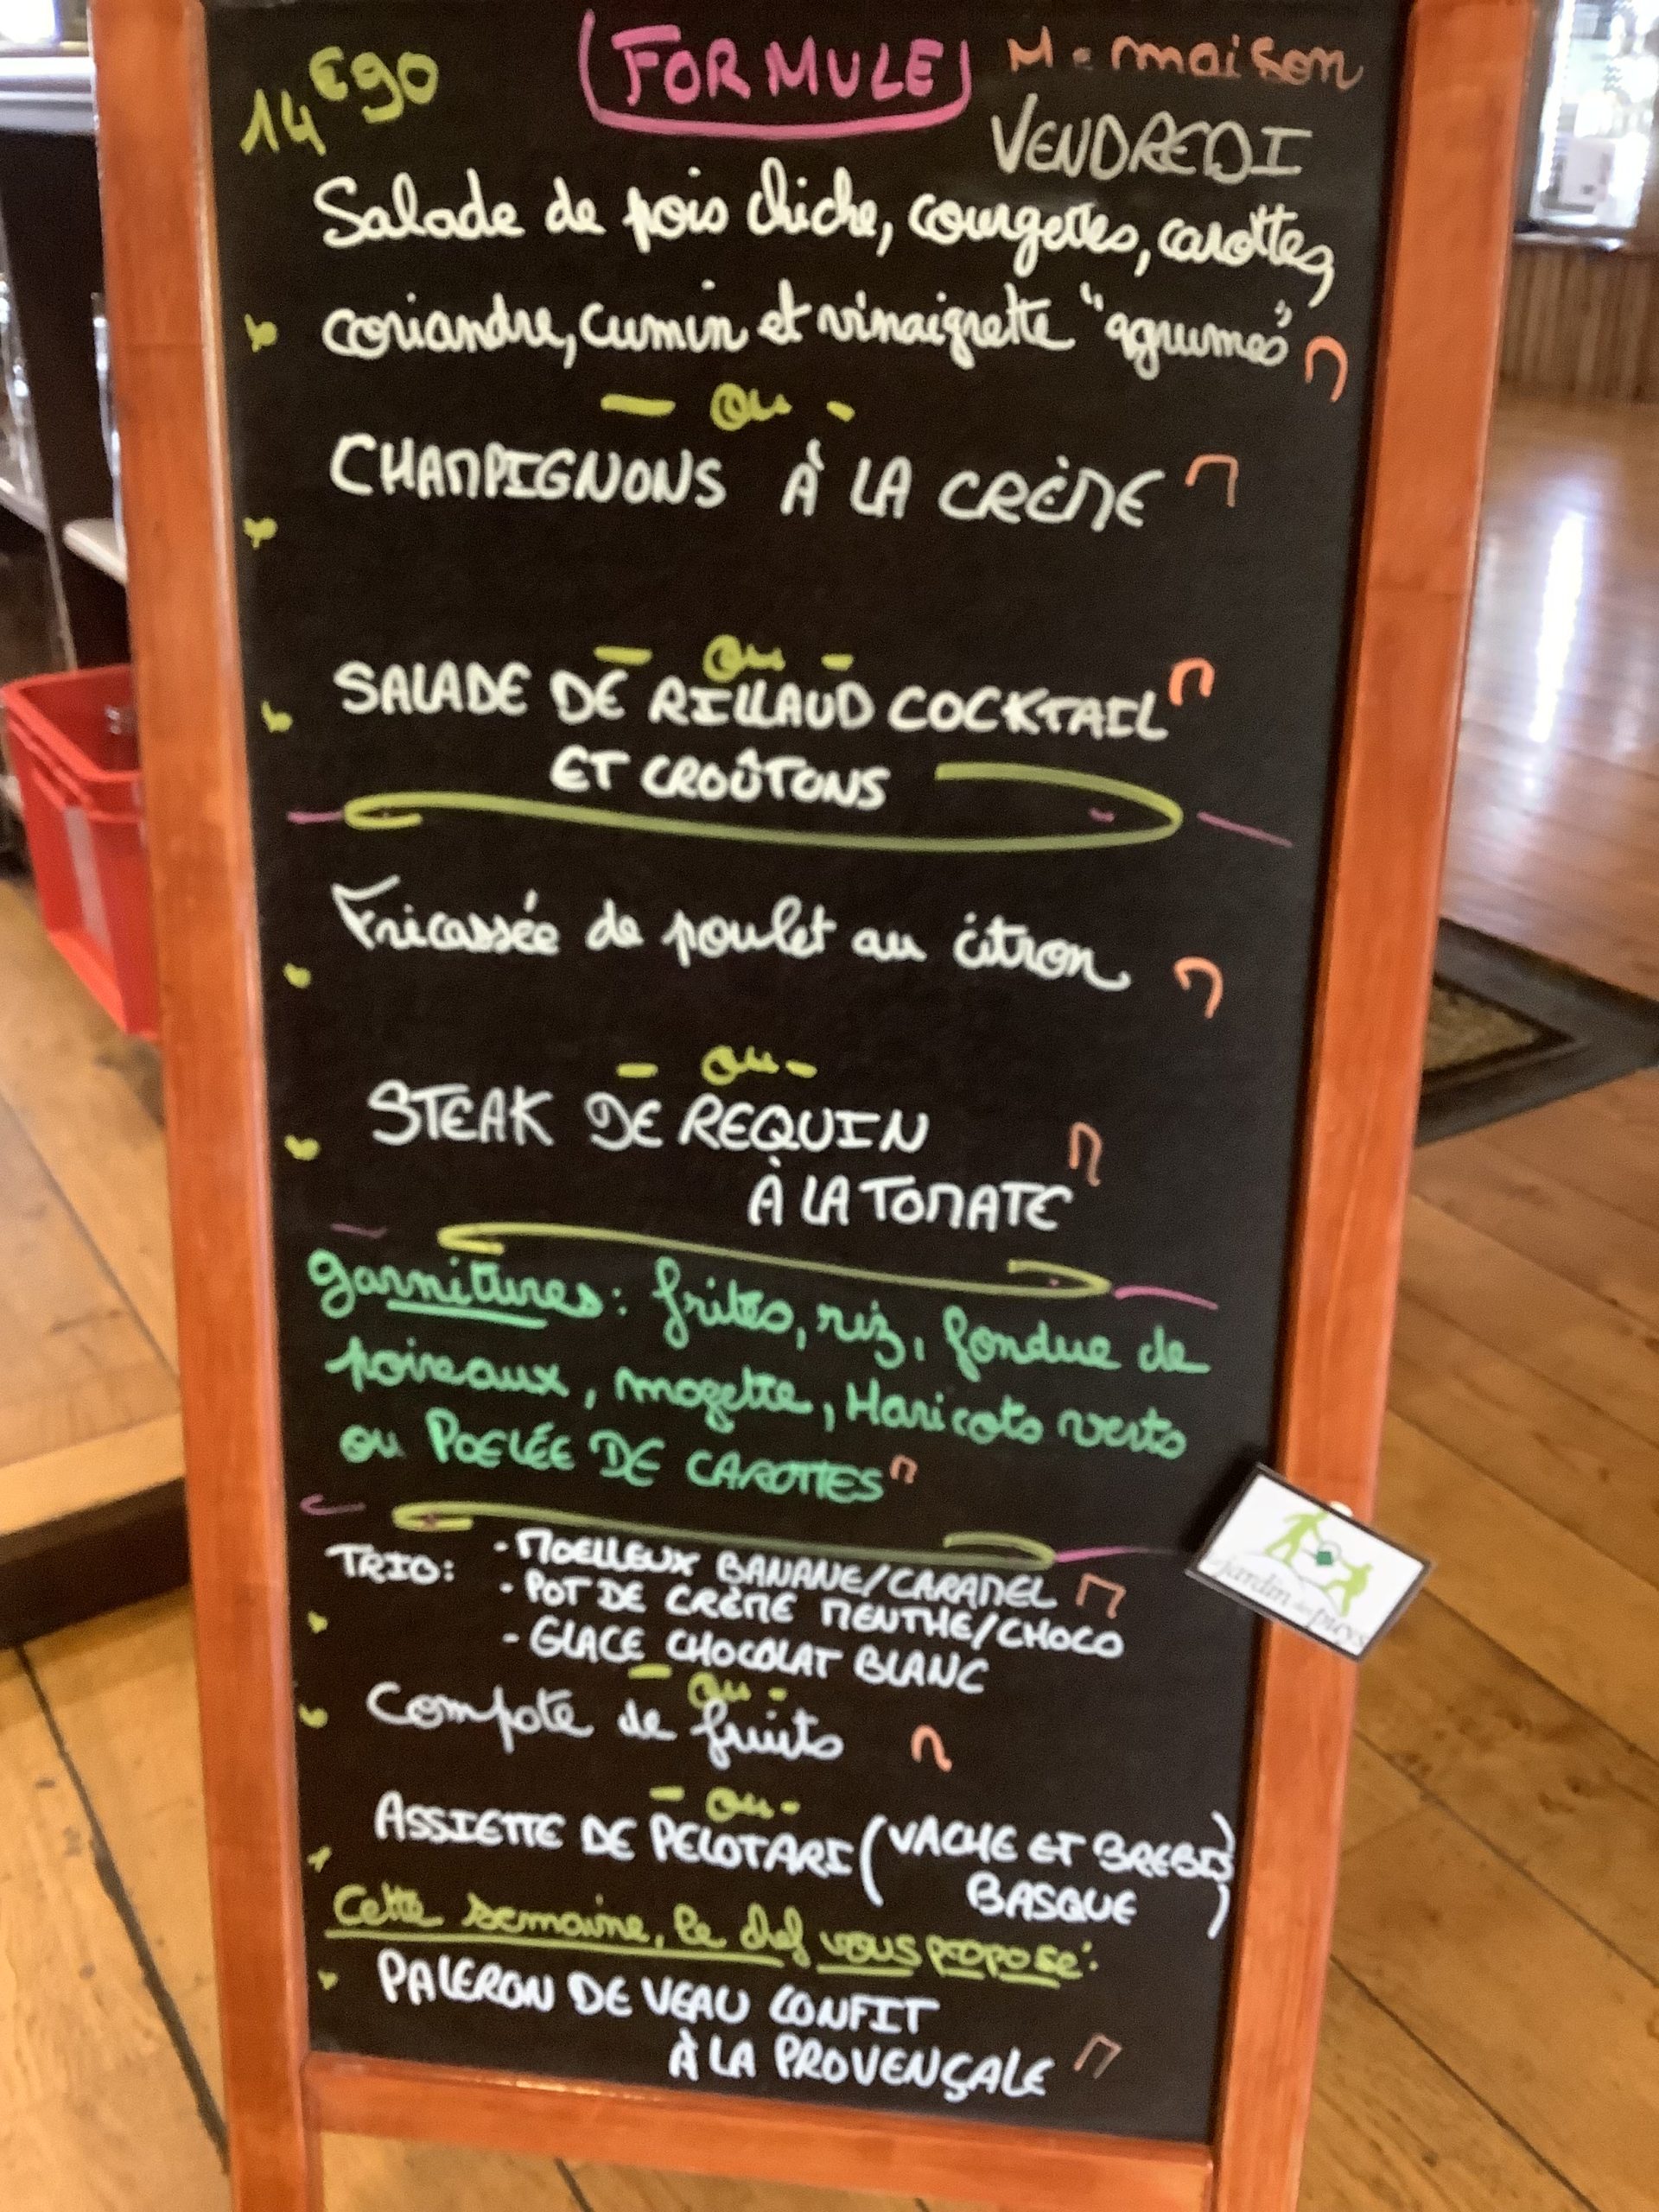 14€90 FORMULE M = maison
VENDREDI
Salade de pois chiche, courgettes, carottes,
coriandre, cumin et vinaigrette "agrumes" M
- ou -
CHAMPIGNONS À LA CRÈME M
- ou -
SALADE DE RILLAUD COCKTAIL M
ET CROÛTONS
Fricassée de poulet au citron M
- ou -
STEAK DE REQUIN M
À LA TOMATE
garnitures : frites, riz, fondue de
poireaux, mogette, Haricots verts
ou POELÉE DE CAROTTES M
TRIO: - MOELLEUX BANANE/CARAMEL M
- POT DE CRÈME MENTHE/CHOCO
- GLACE CHOCOLAT BLANC
- ou -
Compote de fruits M
- ou -
ASSIETTE DE PELOTARI (VACHE ET BREBIS
BASQUE)
Cette semaine, le chef vous propose:
PALERON DE VEAU CONFIT
À LA PROVENÇALE M
jardin des puys